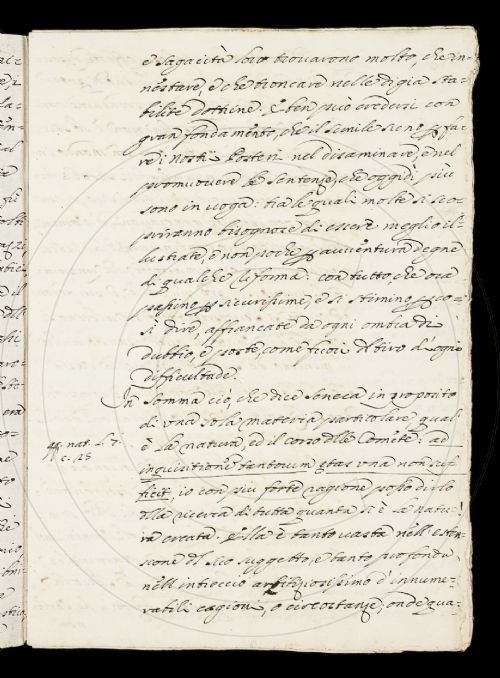 e sagacità loro trouarono molto, che in=
nestare, e che troncare nelle di già sta=
bilite dottrine. E ben può credersi con
gran fondamento, che il simile sieno p fa=
re i Nostri Posteri nel disaminare, e nel
promuouere le sentenze, che oggidì più
sono in uoga: tra le quali molte si sco=
priranno bisognose di essere meglio il=
lustrate, e non poche p auuentura degne
di qualche riforma: con tutto, che ora
passino p sicurissime, e si stimino p co=
sì dire affiancate da ogni ombra di
dubbio, e poste come fuori del tiro d'ogni
difficultade.
In somma ciò, che dice Seneca in proposito
di una sola materia particolare qual
è la natura, ed il corso delle Comete: ad
nat. L. 7.
c. 25
inquisitione tantorum ętas una non suf
ficit, io con più forte ragione posso dirlo
della ricerca di tutta quanta si è la natu=
ra creata. Ella è tanto uasta nell'esten=
sione del suo suggetto, e tanto profonda
nell'intreccio artifiziosissimo d'innume=
rabili cagioni, o circostanze, onde qua=